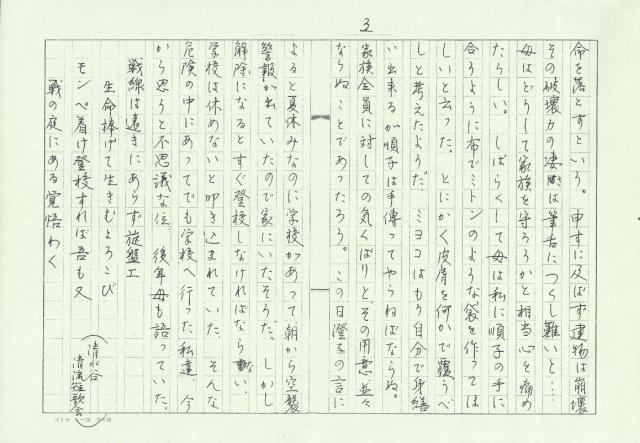 3
命を落すという。申すに及ばず建物は崩壊
その破壊力の凄さは筆舌につくし難いと…
母はどうして家族を守ろうかと相当心を痛め
たらしい。しばらくして母は私に順子の手に
合うように布でミトンのような袋を作っては
しいと言った。とにかく皮膚を何かで覆うべ
しと考えたようだ。ミヨコはもう自分で身繕
い出来るが順子は手傳ってやらねばならぬ。
家族全員に対しての気くばりと、その用意並々
ならぬことであったろう。この日澄子の言に
よると夏休みなのに学校があって朝から空襲
警報が出ていたので家にいたそうだ。しかし
解除になるとすぐ登校しなければならない。
学校は休めないと叩き込まれていた。そんな
危険の中にあってでも学校へ行った私達、今
から思うと不思議な位、後年母も語っていた。
戦線は遠きにあらず旋盤工
生命捧げて生きむよろこび
モンペ着け登校すれば吾も又
戦の庭にある覚悟わく
(清水谷
清流短歌会)